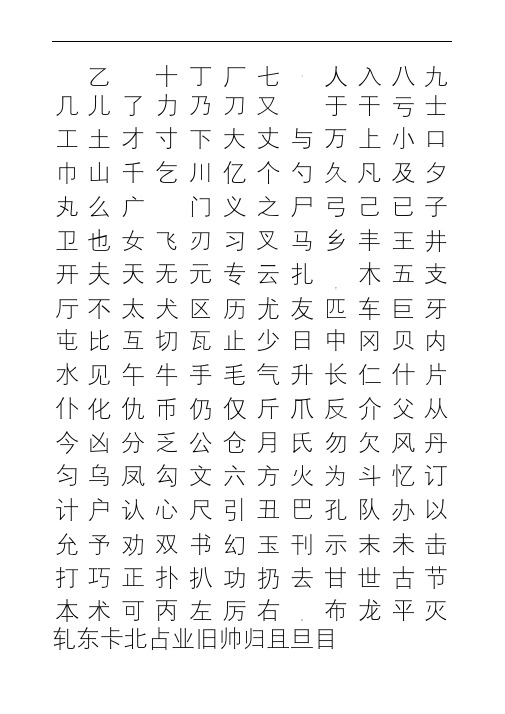 乙 十 丁 厂 七 人 入 八 九
几 儿 了 力 乃 刀 又 于 干 亏 士
工 土 才 寸 下 大 丈 与 万 上 小 口
巾 山 千 乞 川 亿 个 勺 久 凡 及 夕
丸 么 广 门 义 之 尸 弓 己 已 子
卫 也 女 飞 刃 习 叉 马 乡 丰 王 井
开 夫 天 无 元 专 云 扎 木 五 支
厅 不 太 犬 区 历 尤 友 匹 车 巨 牙
屯 比 互 切 瓦 止 少 日 中 冈 贝 内
水 见 午 牛 手 毛 气 升 长 仁 什 片
仆 化 仇 币 仍 仅 斤 爪 反 介 父 从
今 凶 分 乏 公 仓 月 氏 勿 欠 风 丹
匀 乌 凤 勾 文 六 方 火 为 斗 忆 订
计 户 认 心 尺 引 丑 巴 孔 队 办 以
允 予 劝 双 书 幻 玉 刊 示 末 未 击
打 巧 正 扑 扒 功 扔 去 甘 世 古 节
本 术 可 丙 左 厉 右 布 龙 平 灭
轧东卡北占业旧帅归且旦目